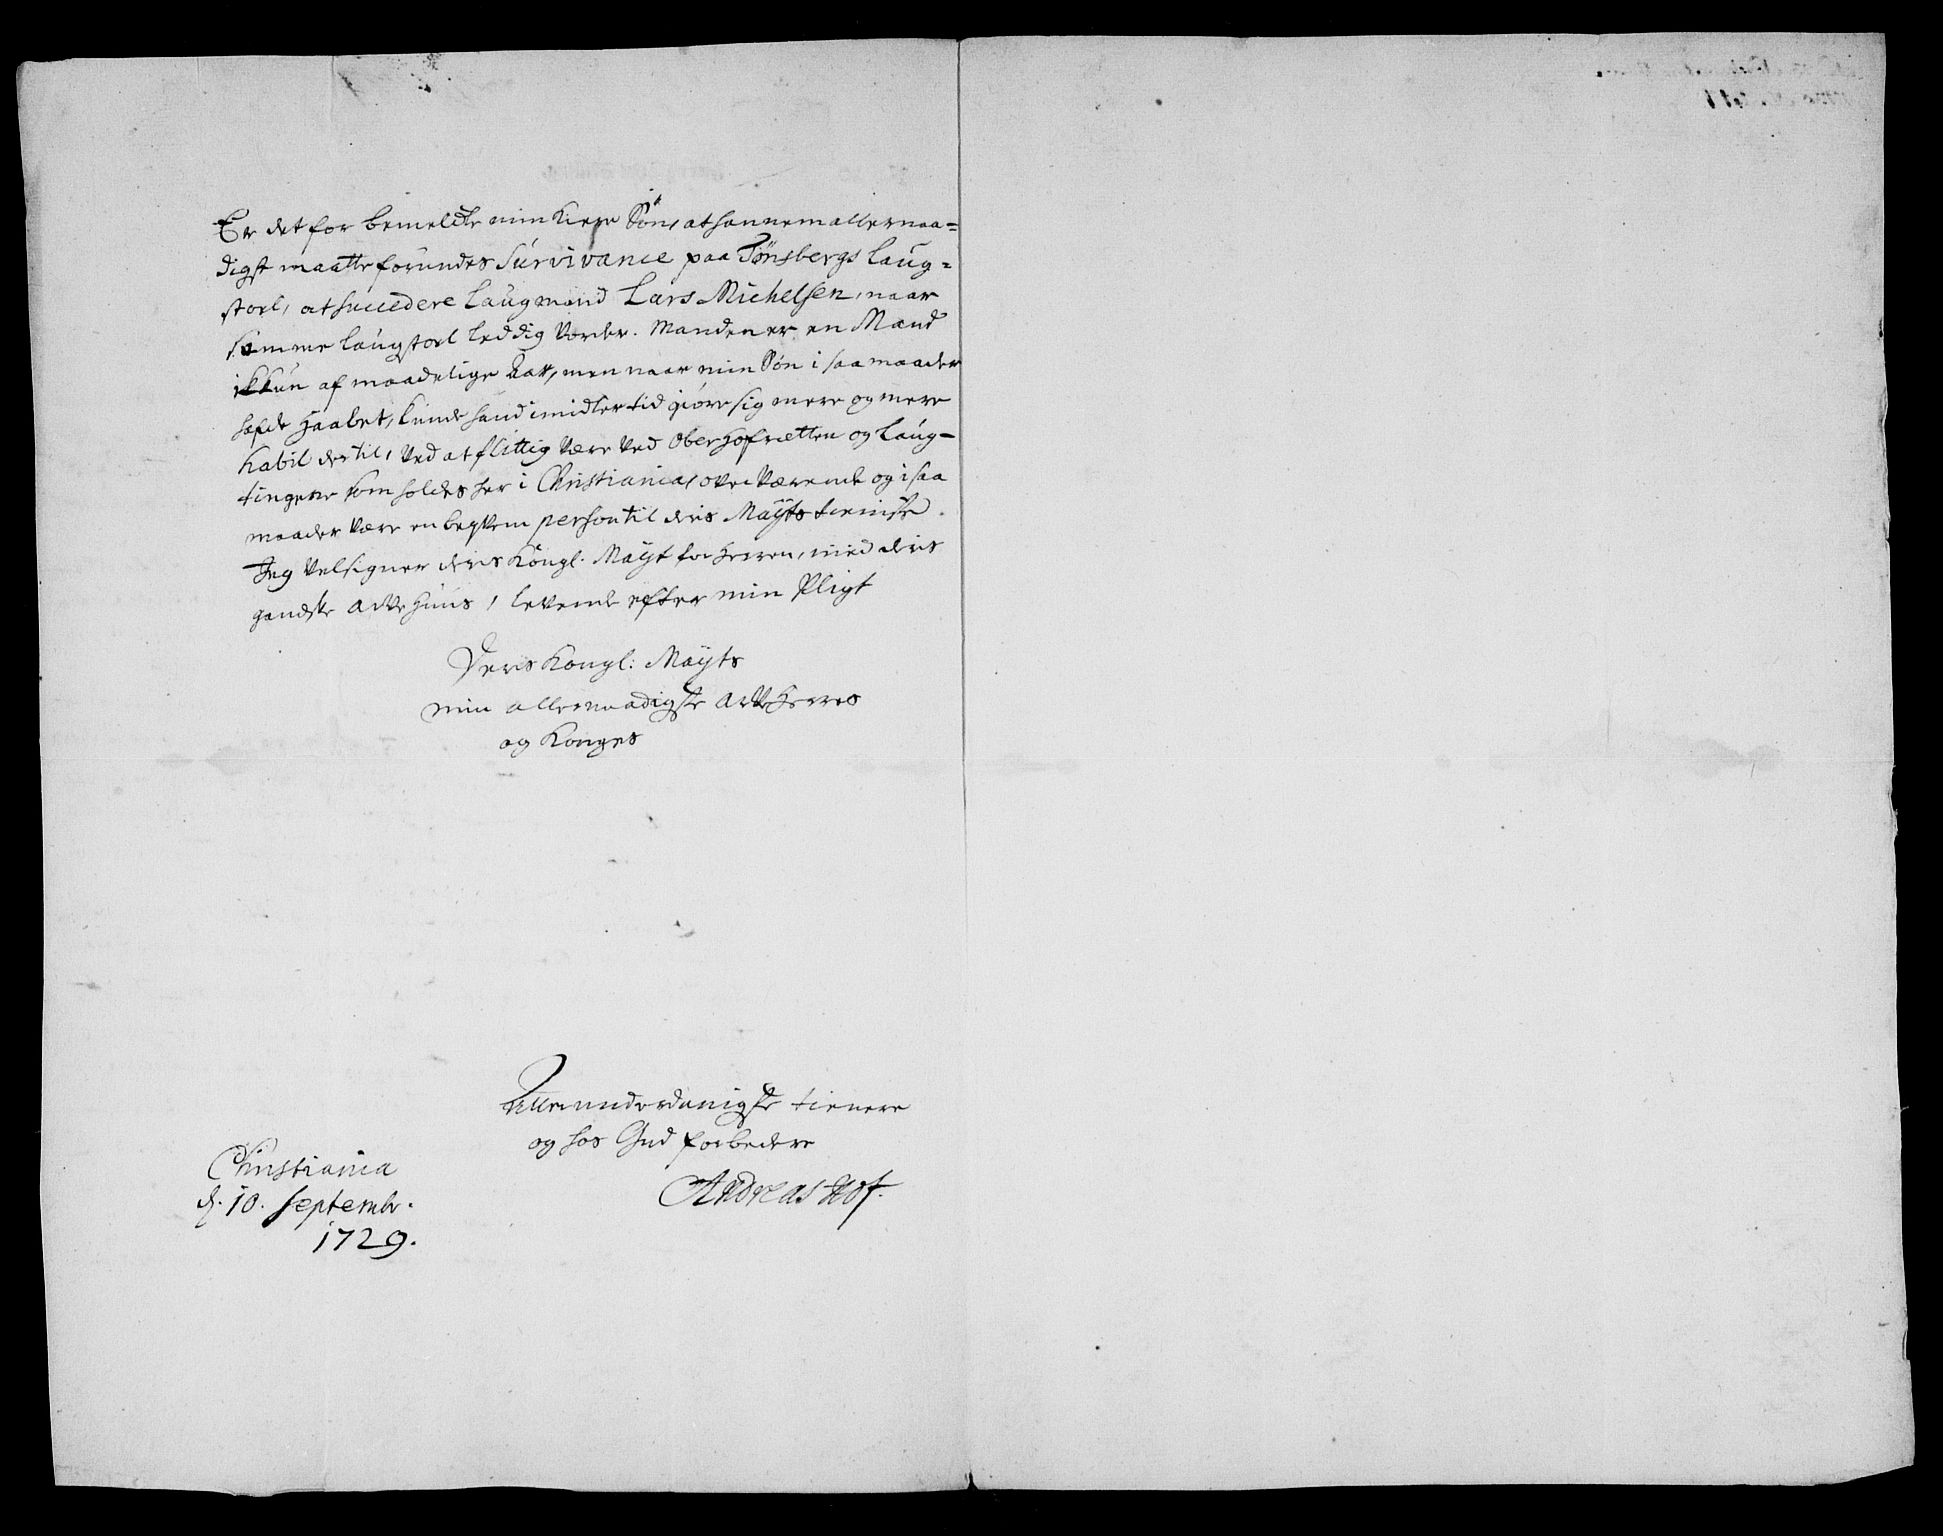 Er det for bemelte min kiere Søn, at hannem allernaa-
digst maatte forundes Survivance paa Tønsbergs Laug-
stoel, at succedere Laugmand Lars Michelsen, naar
samme Laugstoel leddig vorder. Manden er en Mand
ikkun af maadelige Aar, men naar min Søn i saa maader
hafde Haabet, kunde hand imidlertid giøre sig mere og mere
habil dertil, ved at flittig være ved OberHofretten og Laug-
tingene som holdes her i Christiania, overværende og i saa
maader være en beqvem person til deris Mayts tieniste.
Jeg velsigner deris Kongl. Mayt for Herren, med deris
gandske ArveHuus, levende efter min Pligt
Deris Kongl: Mayts
min allernaadigste ArveHerres
og Konges
Allerunderdanigste tienere
og hos Gud forbedere
Andreas Hof.
Christiania
d. 10. Septembr.
1729.